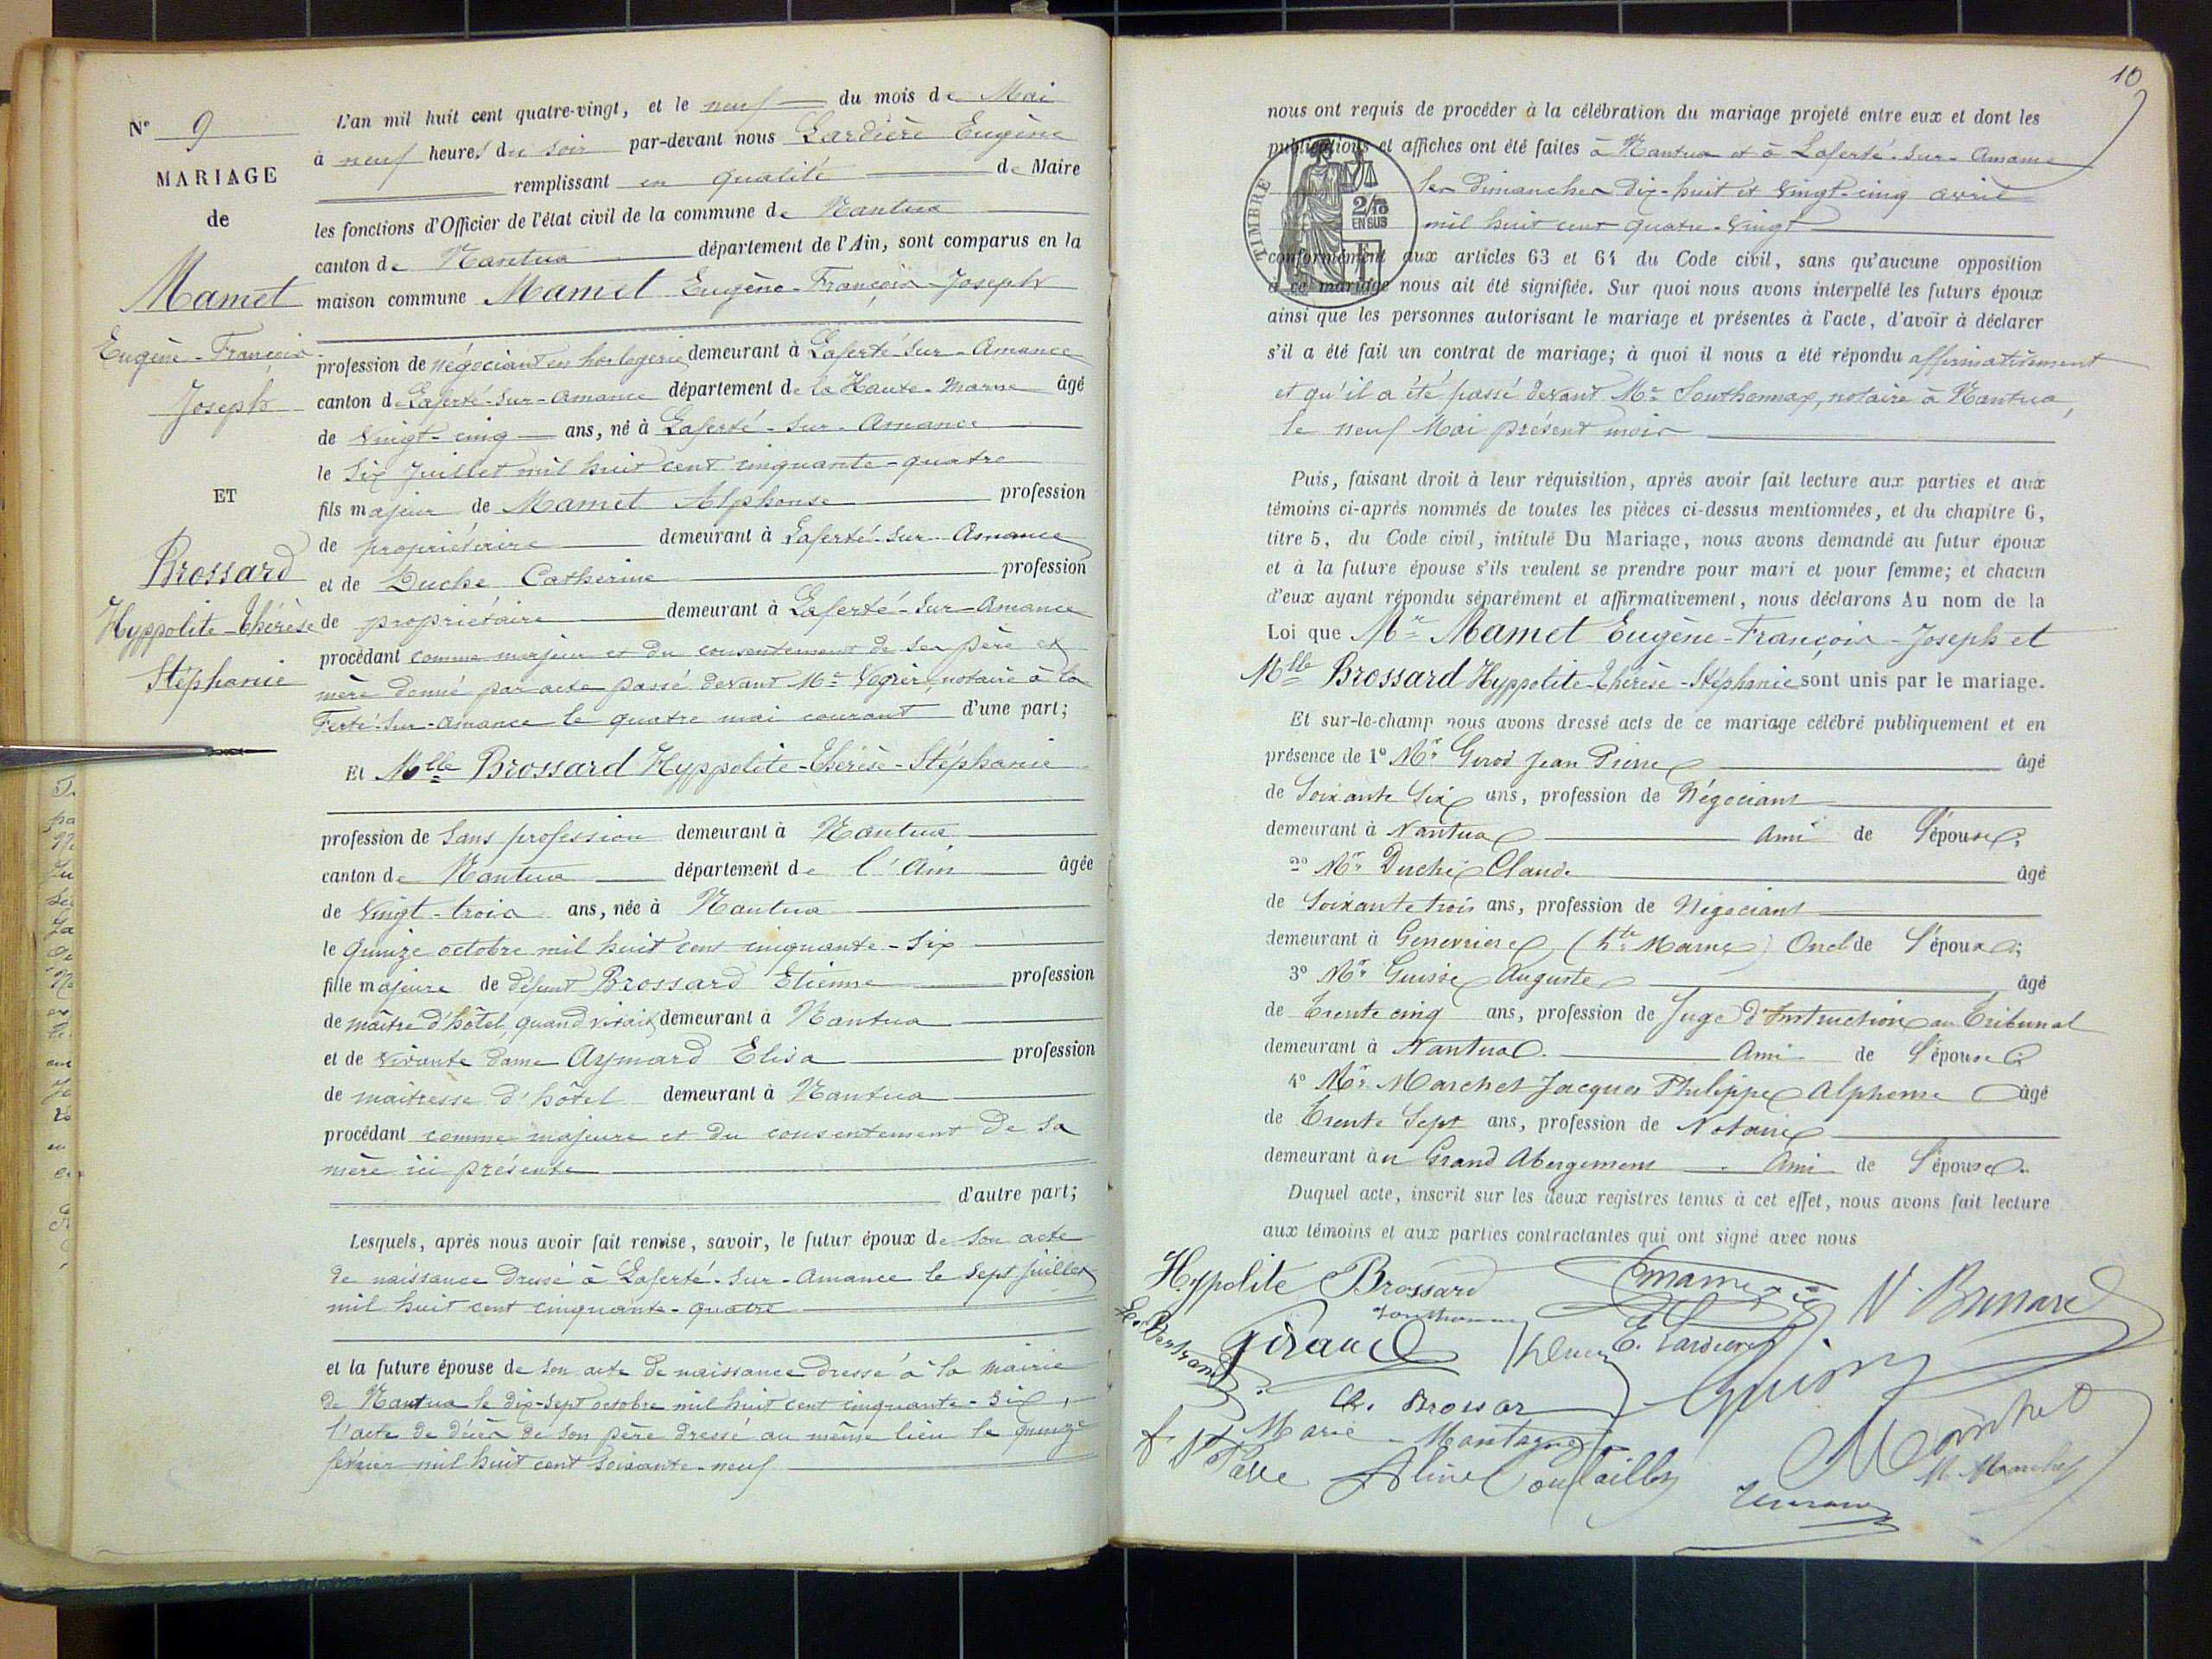 N° 9
MARIAGE
de
Mamet
Eugène-François
Joseph
ET
Brossard
Hyppolite-Thérèse
Stéphanie
L'an mil huit cent quatre-vingt, et le neuf du mois de Mai
à neuf heures du soir par-devant nous Lardière Eugène
remplissant en qualité de Maire
les fonctions d'Officier de l'état civil de la commune de Nantua
canton de Nantua département de l'Ain, sont comparus en la
maison commune Mamet Eugène-François-Joseph
profession de négociant en horlogerie demeurant à Laferté-sur-Amance
canton de Laferté-sur-Amance département de la Haute-Marne âgé
de vingt-cinq ans, né à Laferté-sur-Amance
le six Juillet mil huit cent cinquante-quatre
fils majeur de Mamet Alphonse profession
de propriétaire demeurant à Laferté-sur-Amance
et de Duché Catherine profession
de propriétaire demeurant à Laferté-sur-Amance
procédant comme majeur et du consentement de ses père et
mère donné par acte passé devant Me notaire à la
Ferté-sur-Amance le quatre mai courant d'une part;
Et Mlle Brossard Hyppolite-Thérèse-Stéphanie
profession de sans profession demeurant à Nantua
canton de Nantua département de l'Ain âgée
de vingt-trois ans, née à Nantua
le quinze octobre mil huit cent cinquante-six
fille majeure de défunt Brossard Etienne profession
de maître d'hôtel, quand vivait, demeurant à Nantua
et de vivante dame Aymard Elisa profession
de maitresse d'hôtel demeurant à Nantua
procédant comme majeure et du consentement de sa
mère ici présente
d'autre part;
Lesquels, après nous avoir fait remise, savoir, le futur époux de son acte
de naissance dressé à Laferté-sur-Amance le sept juillet
mil huit cent cinquante-quatre
et la future épouse de son acte de naissance dressé à la mairie
de Nantua le dix-sept octobre mil huit cent cinquante-six,
l'acte de décès de son père dressé au même lieu le quinze
février mil huit cent soixante-neuf
10
nous ont requis de procéder à la célébration du mariage projeté entre eux et dont les
publications et affiches ont été faites à Nantua et à Laferté-sur-Amance
les dimanches dix-huit et vingt-cinq avril
mil huit cent quatre-vingt
TIMBRE
2/10
EN SUS
conformément aux articles 63 et 64 du Code civil, sans qu'aucune opposition
à ce mariage nous ait été signifiée. Sur quoi nous avons interpellé les futurs époux
ainsi que les personnes autorisant le mariage et présentes à l'acte, d'avoir à déclarer
s'il a été fait un contrat de mariage; à quoi il nous a été répondu affirmativement
et qu'il a été passé devant Me Southonnax, notaire à Nantua,
le neuf Mai présent mois
Puis, faisant droit à leur réquisition, après avoir fait lecture aux parties et aux
témoins ci-après nommés de toutes les pièces ci-dessus mentionnées, et du chapitre 6,
titre 5, du Code civil, intitulé Du Mariage, nous avons demandé au futur époux
et à la future épouse s'ils veulent se prendre pour mari et pour femme; et chacun
d'eux ayant répondu séparément et affirmativement, nous déclarons Au nom de la
Loi que Mr Mamet Eugène-François-Joseph et
Mlle Brossard Hyppolite-Thérèse-Stéphanie sont unis par le mariage.
Et sur-le-champ nous avons dressé acte de ce mariage célébré publiquement et en
présence de 1° Mr Girod Jean Pierre âgé
de Soixante Six ans, profession de Négociant
demeurant à Nantua Ami de l'épouse;
2° Mr Duché Claude âgé
de Soixante trois ans, profession de Négociant
demeurant à (Hte Marne) Oncl de l'époux;
3° Mr Auguste âgé
de Trente cinq ans, profession de Juge d'Instruction au Tribunal
demeurant à Nantua Ami de l'épouse;
4° Mr Marchet Jacques Philippe Alphonse âgé
de Trente Sept ans, profession de Notaire
demeurant au Grand Abergement Ami de l'épouse.
Duquel acte, inscrit sur les deux registres tenus à cet effet, nous avons fait lecture
aux témoins et aux parties contractantes qui ont signé avec nous
Hyppolite Brossard
E. Lardière
Marie Montagne
Aline